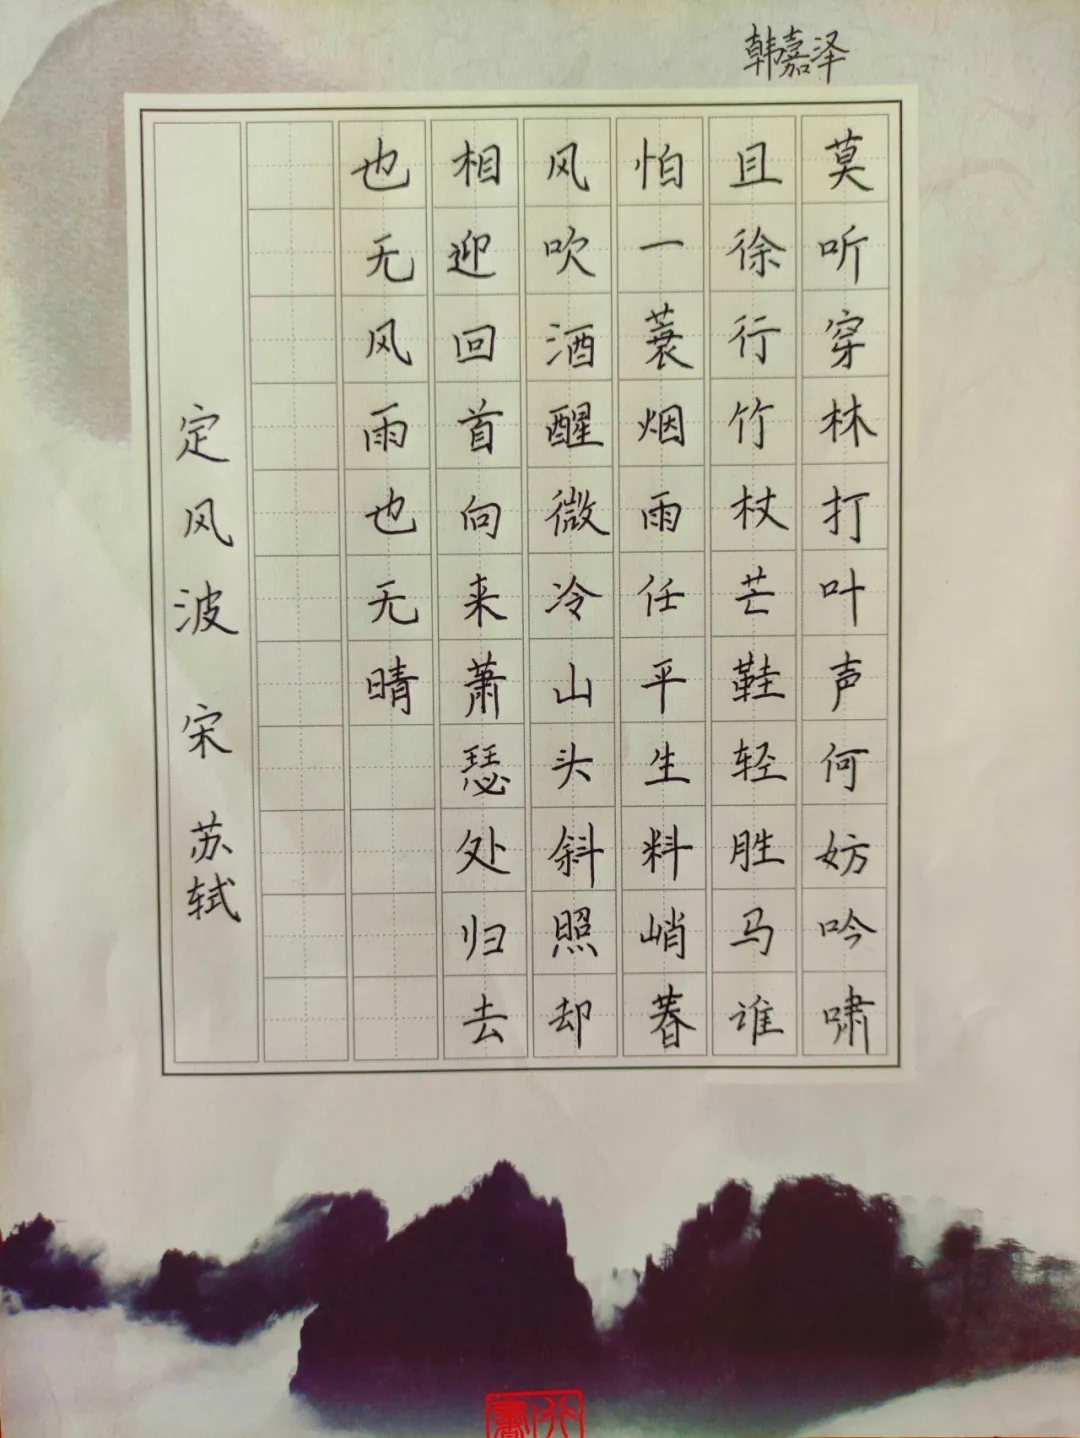 韩嘉泽
莫听穿林打叶声何妨吟啸
且徐行竹杖芒鞋轻胜马谁
怕一蓑烟雨任平生料峭萶
风吹酒醒微冷山头斜照却
相迎回首向来萧瑟处归去
也无风雨也无晴
定风波 宋 苏轼